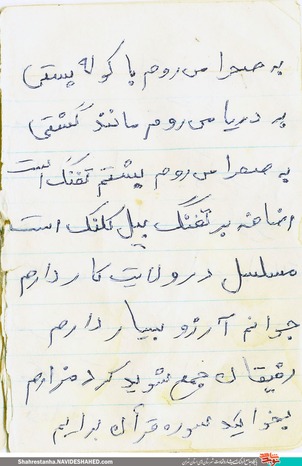 به صحرا می روم با کوله پستی
به دریا می روم مانند کشتی
به صحرا می روم پشتم تفنگ است
اضافه بر تفنگ بیل کلنگ است
مسلسل در ولایت کار دارم
جوانم آرزو بسیار دارم
رفیقان جمع شوید گرد مزارم
بخوانید سوره قرآن برایم
Shahrestanha.NAVIDESHAHED.com